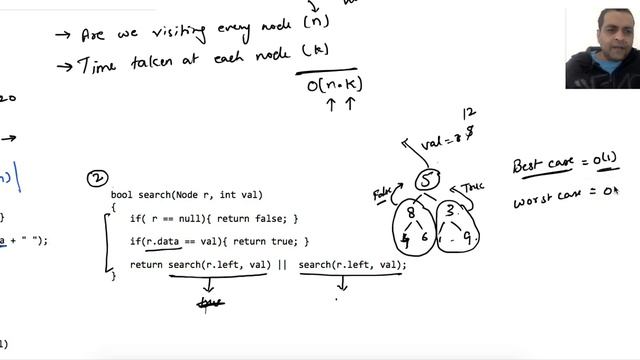 → Are we visiting every node (n)
→ Time taken at each node (k)
O(n·k)
20
12
val = 3 8
5
False
True
8
3
4 6
9
Best case = O(1)
worst case = O
2
bool search(Node r, int val)
{
if( r == null){ return false; }
if(r.data == val){ return true; }
return search(r.left, val) || search(r.left, val);
}
true
n)
}
a + " ");
l)